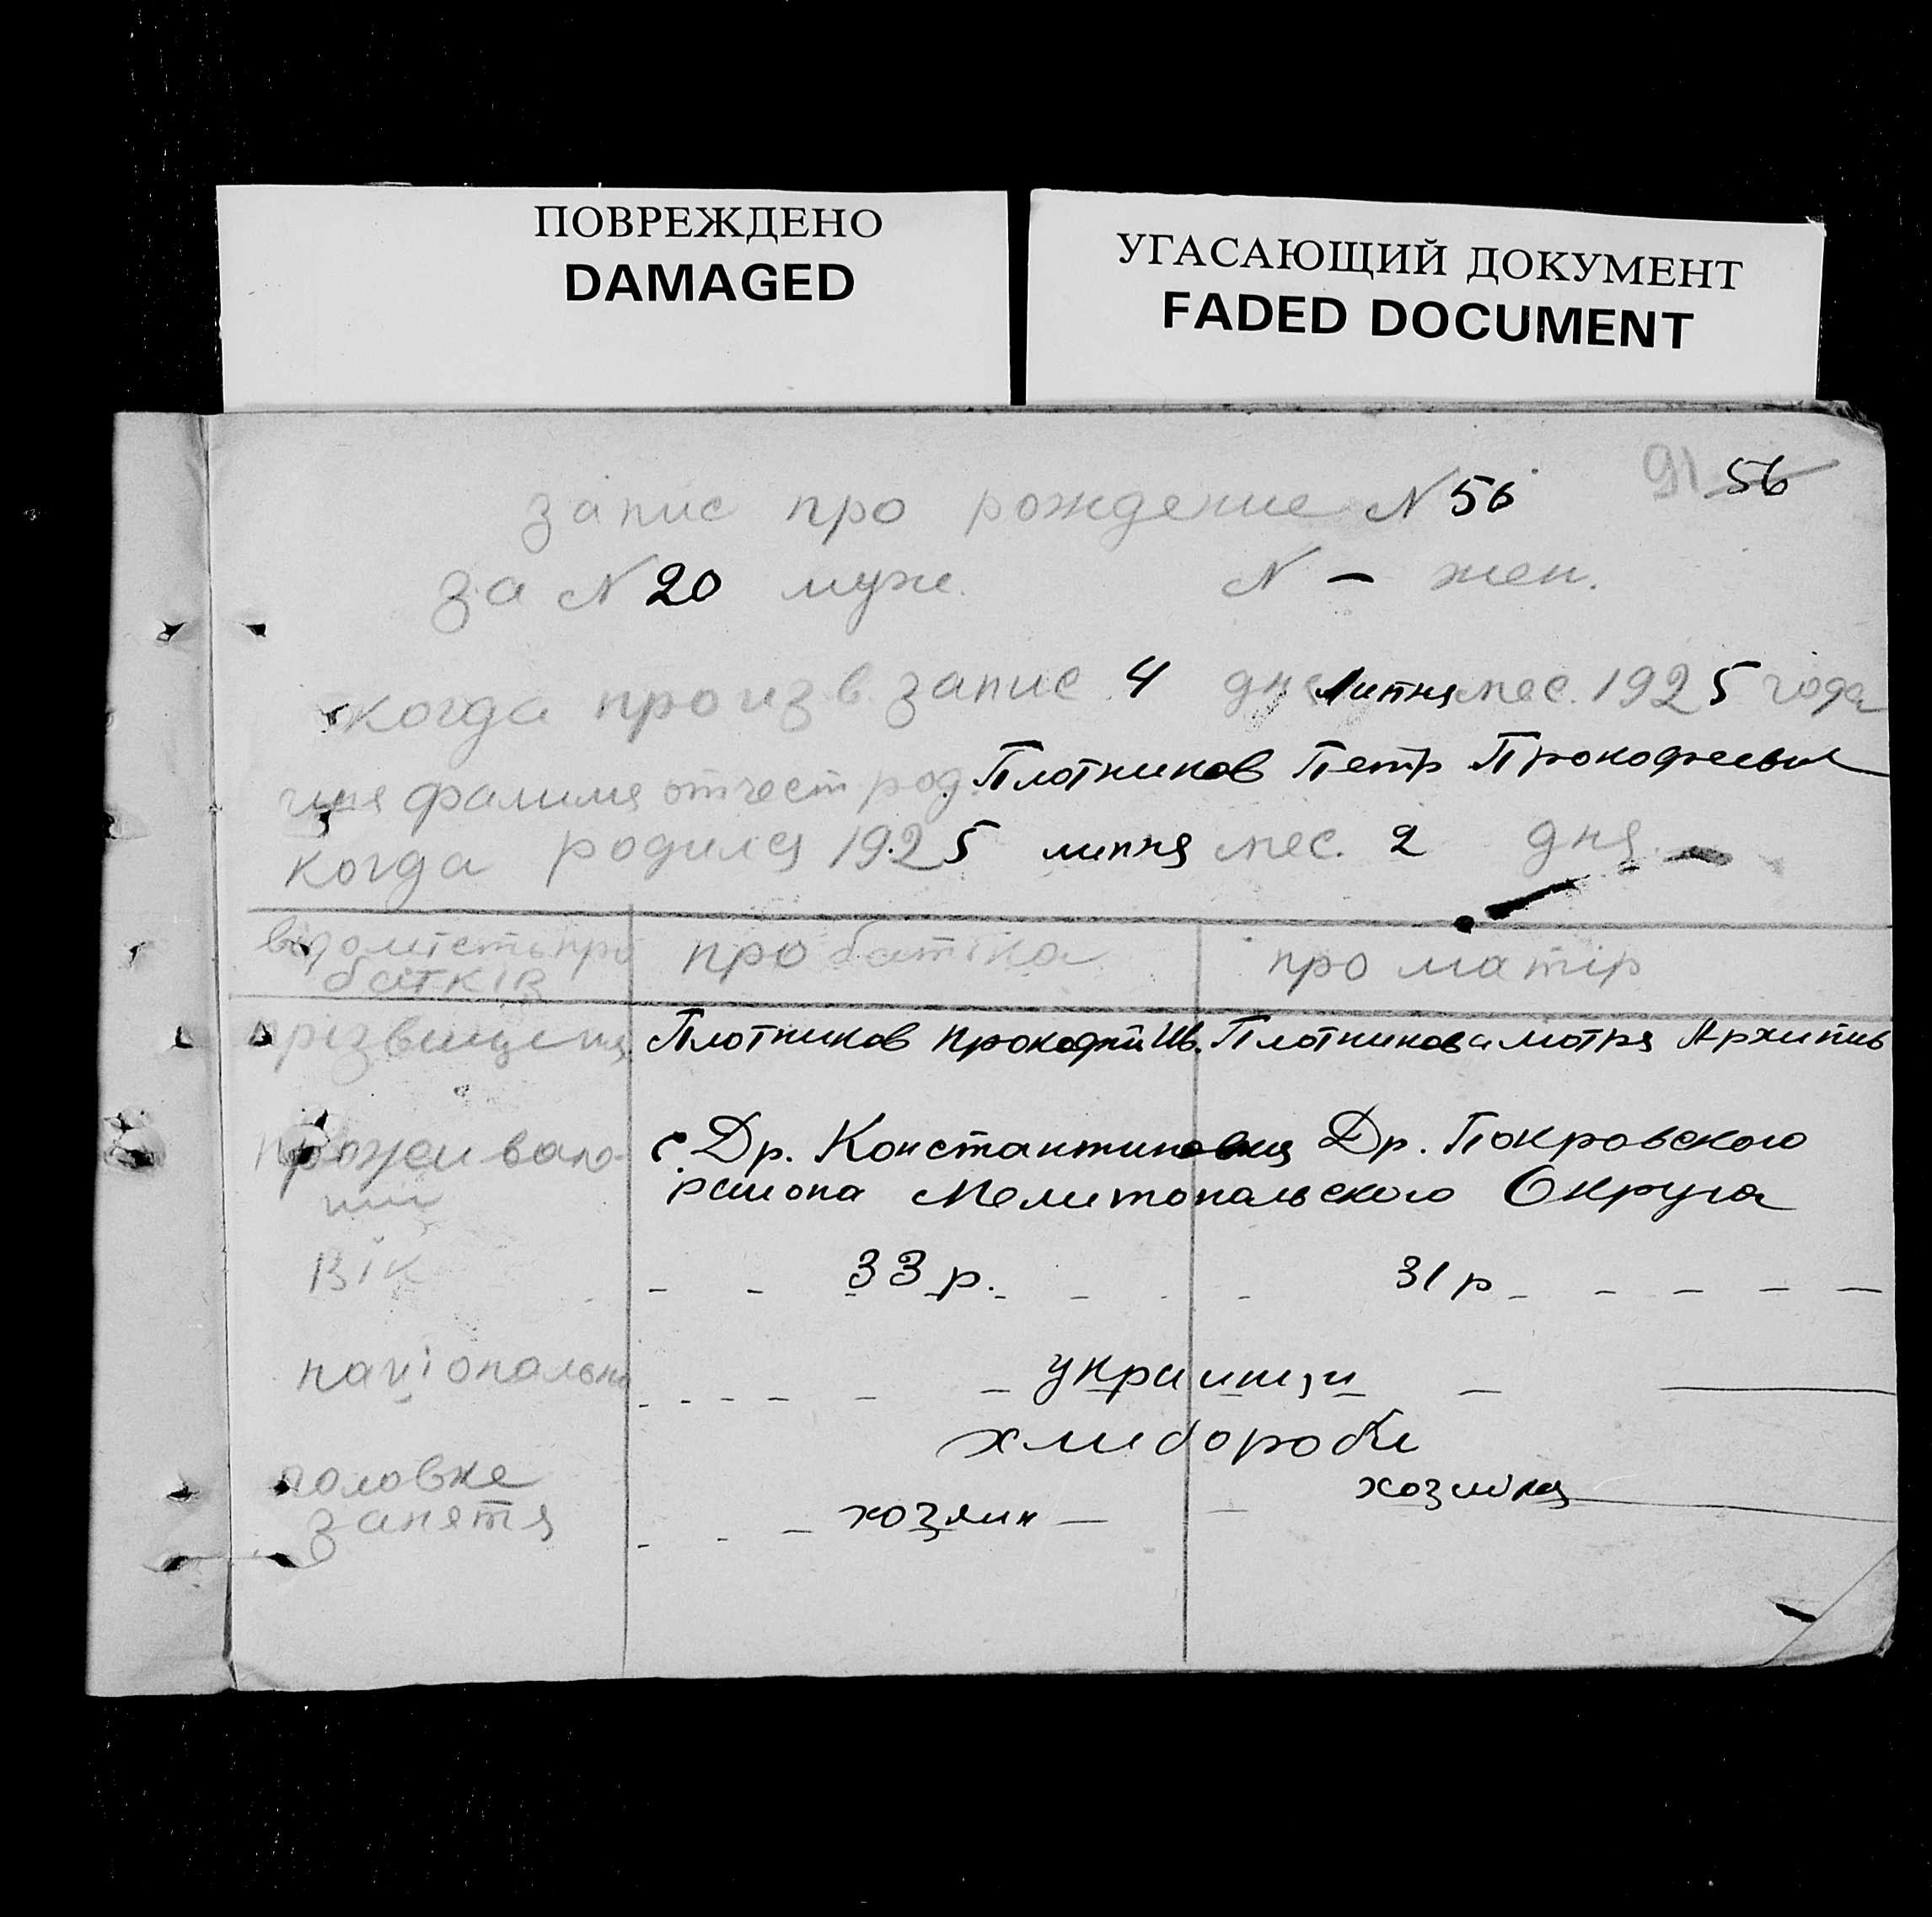 ПОВРЕЖДЕНО
DAMAGED
УГАСАЮЩИЙ ДОКУМЕНТ
FADED DOCUMENT
91 56
запис про рождение N 56
за N 20 муж. N – жен.
когда произв. запис 4 дня Липня мес. 1925 года
имя фамилия отчест род. Плотников Петр Прокофьевич
когда родился 1925 липня мес. 2 дня
відомість про батьків про батька про матір
прізвище Плотников Прокофий Ив. Плотникова Мотря Архипив
проживают с. Др. Константиновка Др. Покровского
района Мелитопальского Округа
вік 33 р. 31 р
національн украинци
хлибороби
головне заняття хозяин хозяйка